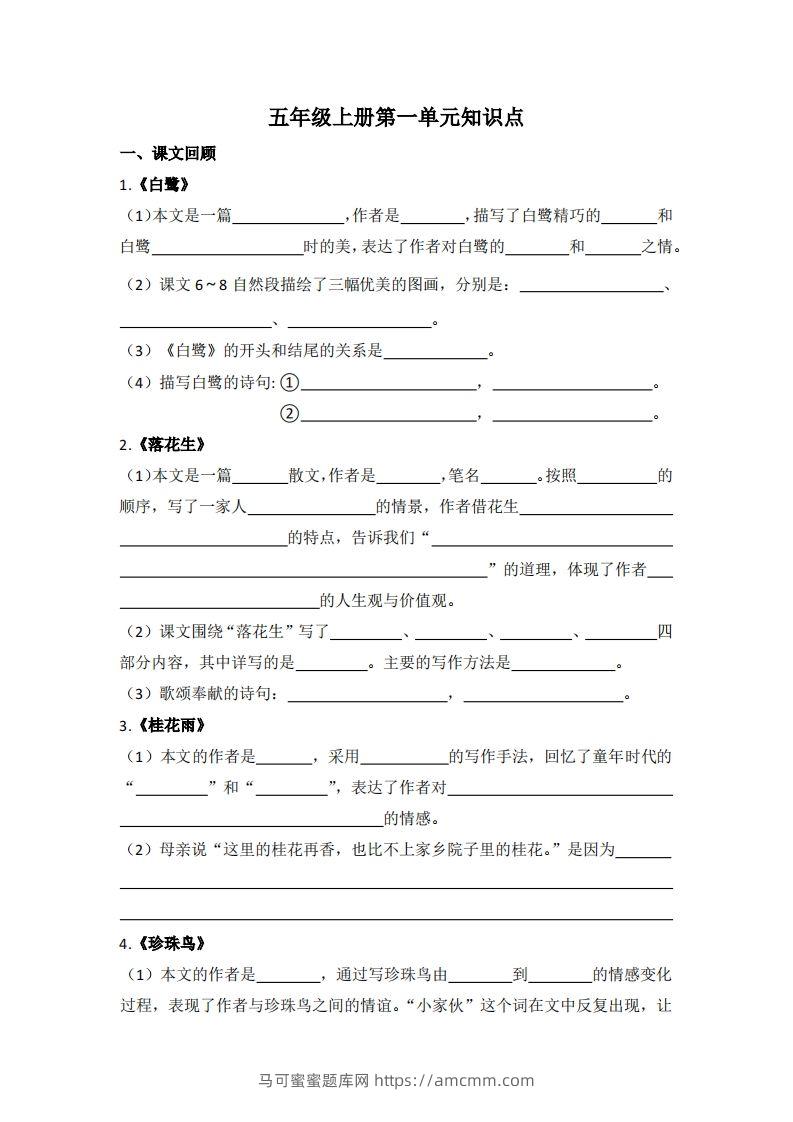 五年级上册第一单元知识点
一、课文回顾
1.《白鹭》
（1)本文是一篇______________,作者是________,描写了白鹭精巧的_______和
白鹭___________________时的美,表达了作者对白鹭的________和_______之情。
（2）课文6~8自然段描绘了三幅优美的图画，分别是：__________________、
___________________、__________________。
（3）《白鹭》的开头和结尾的关系是_____________。
（4）描写白鹭的诗句:①______________________，____________________。
②______________________，____________________。
2.《落花生》
（1)本文是一篇_______散文,作者是________,笔名_______。按照__________的
顺序，写了一家人________________的情景，作者借花生___________________
_____________________的特点，告诉我们“______________________________
______________________________________________”的道理，体现了作者___
_________________________的人生观与价值观。
（2）课文围绕“落花生”写了_________、_________、_________、_________四
部分内容，其中详写的是_________。主要的写作方法是_____________。
（3）歌颂奉献的诗句：____________________，____________________。
3.《桂花雨》
（1）本文的作者是_______，采用___________的写作手法，回忆了童年时代的
“_________”和“_________”，表达了作者对____________________________
_________________________________的情感。
（2）母亲说“这里的桂花再香，也比不上家乡院子里的桂花。”是因为_______
_____________________________________________________________________
_____________________________________________________________________
4.《珍珠鸟》
（1）本文的作者是________，通过写珍珠鸟由________到________的情感变化
过程，表现了作者与珍珠鸟之间的情谊。“小家伙”这个词在文中反复出现，让
马可蜜蜜题库网 https://amcmm.com